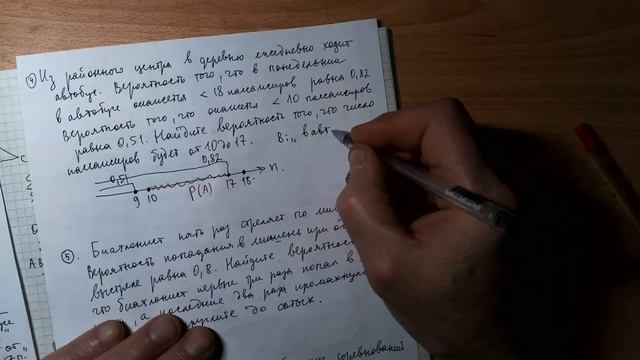 ④ Из районного центра в деревню ежедневно ходит
автобус. Вероятность того, что в понедельник
в автобусе окажется < 18 пассажиров равна 0,82
Вероятность того, что окажется < 10 пассажиров
равна 0,51. Найдите вероятность того, что число
пассажиров будет от 10 до 17. В: „в авт
0,51 0,82 n.
9 10 P(A) 17 18
⑤. Биатлонист пять раз стреляет по ми
Вероятность попадания в мишень при о
выстреле равна 0,8. Найдите вероятнос
что биатлонист первые три раза попал в
, а последние два раза промахнул
округлите до сотых.
соревнований